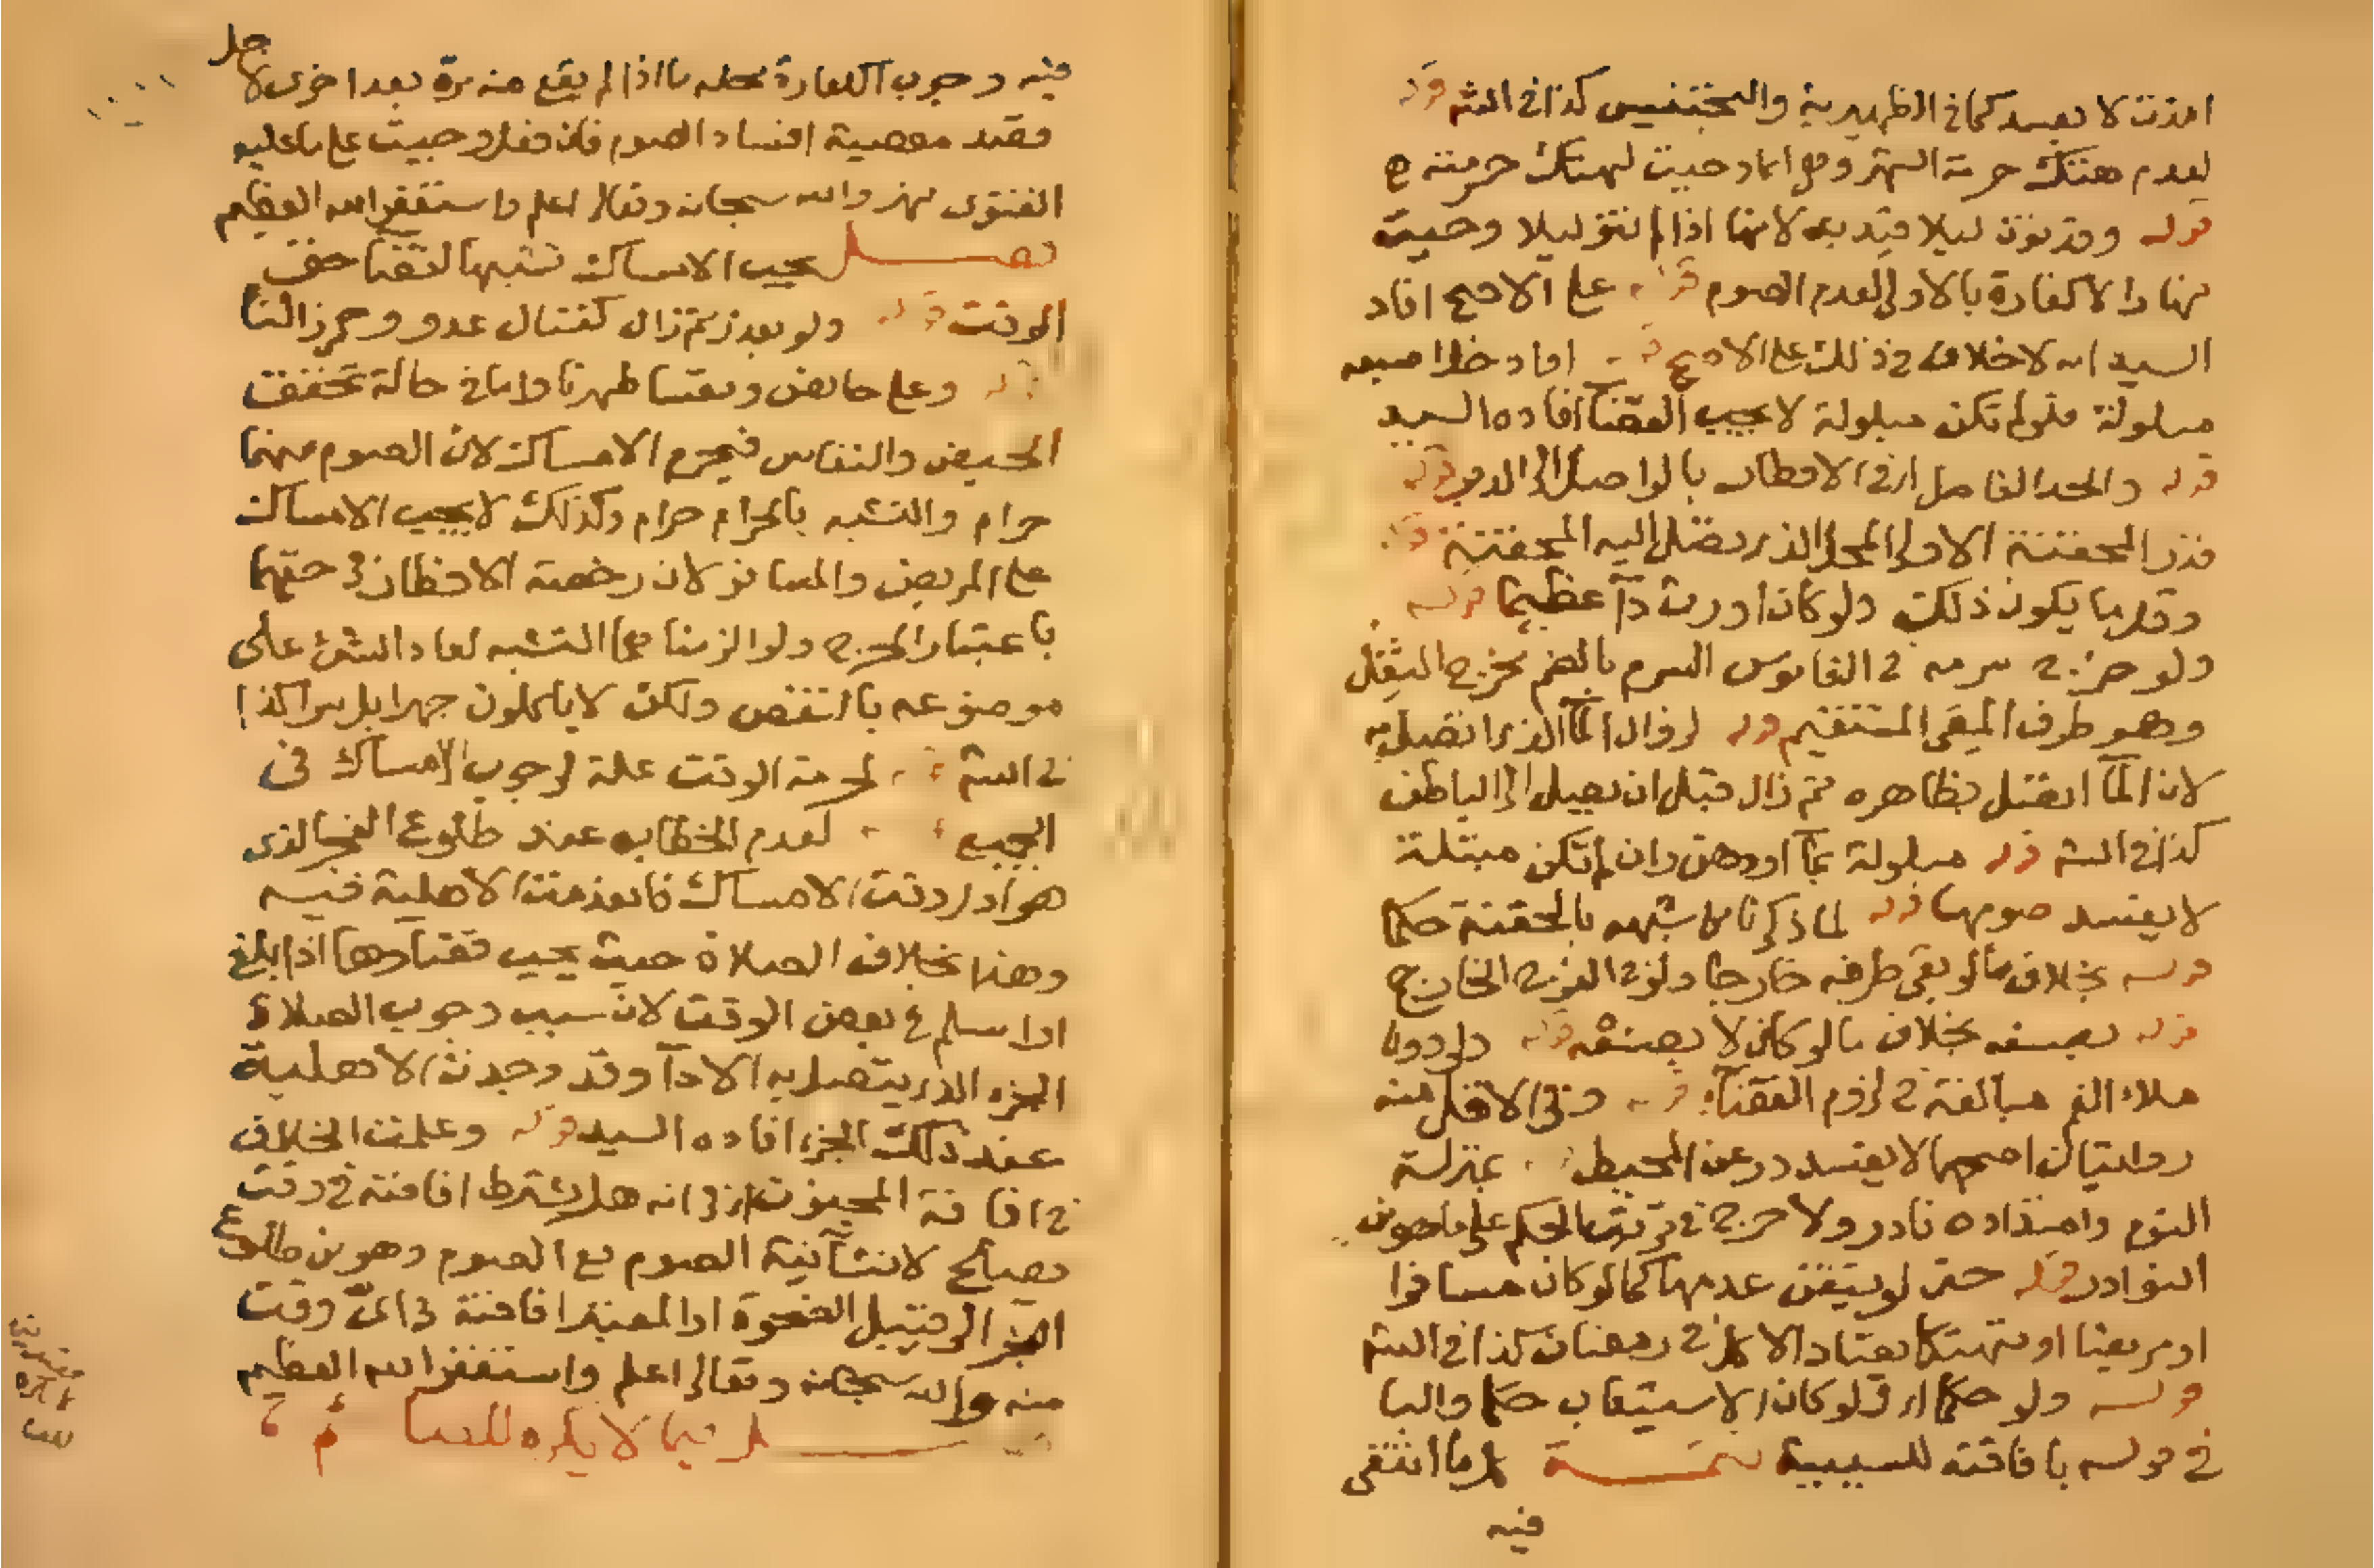 انزلت لا يفسد كما في الظهيرية والتجنيس كذا في الشر قوله
لعدم هتك حرمة الشهر وهي انما وجبت لهتك حرمته ح
قوله وقد نوت ليلا قيد به لانها اذا لم تنو ليلا وجبت
نهارا لا كفارة بالاولى لعدم الصوم قوله على الاصح افاد
السيد انه لا خلاف في ذلك على الاصح قوله افاد خل اصبعه
مبلولة فلو لم تكن مبلولة لا يجب القضا افاده السيد
قوله والحد الفاصل اي في الافطار بالواصل الى الدبر قوله
قدر المحقنة الاولى المحل الذي تصل اليه المحقنة قوله
وقلما يكون ذلك ولو كان اورث دآ عظيما قوله
ولو خرج سرمه في القاموس السرم بالضم مخرج الثفل
وهو طرف المعى المستقيم قوله لزوال المآ الذي اتصل به
لان المآ اتصل بظاهره ثم زال قبل ان يصل الى الباطن
كذا في الشر قوله مبلولة بمآ او دهن وان لم تكن مبتلة
لا يفسد صومها قوله لما ذكرنا لا شبهه بالحقنة حكما
قوله بخلاف ما لو بقي طرفه خارجا ولو في الفرج الخارج
قوله بصنعه بخلاف ما لو كان لا بصنعه قوله ولو دون
ملاء الفم مبالغة في لزوم القضآ قوله وفي الاقل منه
روايتان اصحهما لا يفسد در عن المحيط بمنزلة
النوم وامتداده نادر ولا حرج في ترتيب الحكم على ما هو من
النوادر قوله حتى لو تيقن عدمها كما لو كان مسافرا
او مريضا او متهتكا يعتاد الاكل في رمضان كذا في الشر
قوله ولو حكما اي ولو كان الاستيعاب حكما والبا
في قوله بافاقته للسببية تتمة كل ما انتفى
فيه
فيه وجوب الكفارة محله ما اذا لم يقع منه مرة بعد اخرى لاجل
قصد معصية افساد الصوم فان فعل وجبت على ما عليه
الفتوى نهر والله سبحانه وتعالى اعلم واستغفر الله العظيم
فصل يجب الامساك تشبها لقضا حق
الوقت قوله ولو بعذر ثم زال كقتال عدو ومرض التا
قوله وعلى حايض ونفسا طهرتا واما في حالة تحقق
الحيض والنفاس فيحرم الامساك لان الصوم منهما
حرام والتشبه بالحرام حرام وكذلك لا يجب الامساك
على المريض والمسافر لان رخصة الافطار في حقهما
باعتبار الحرج ولو الزمناهما التشبه لعاد الشئ على
موضوعه بالنقض ولكن لا ياكلون جهرا بل سرا كذا
في الشر قوله لحرمة الوقت علة لوجوب الامساك في
الجميع قوله لعدم الخطاب عند طلوع الفجر الذي
هو اول وقت الامساك فانعدمت الاهلية فيه
وهذا بخلاف الصلاة حيث يجب قضاوها اذا بلغ
او اسلم في بعض الوقت لان سبب وجوب الصلاة
الجزء الذي يتصل به الادآ وقد وجدت الاهلية
عند ذلك الجزء افاده السيد قوله وعلمت الخلاف
في افاقة المجنون اي في انه هل يشترط افاقته في وقت
يصلح لانشآ نية الصوم مع الصوم وهو من طلوع
الفجر الى قبيل الضحوة او المعتبر افاقته في اي وقت
منه والله سبحانه وتعالى اعلم واستغفر الله العظيم
فصل فيما لا يكره للصا ئم